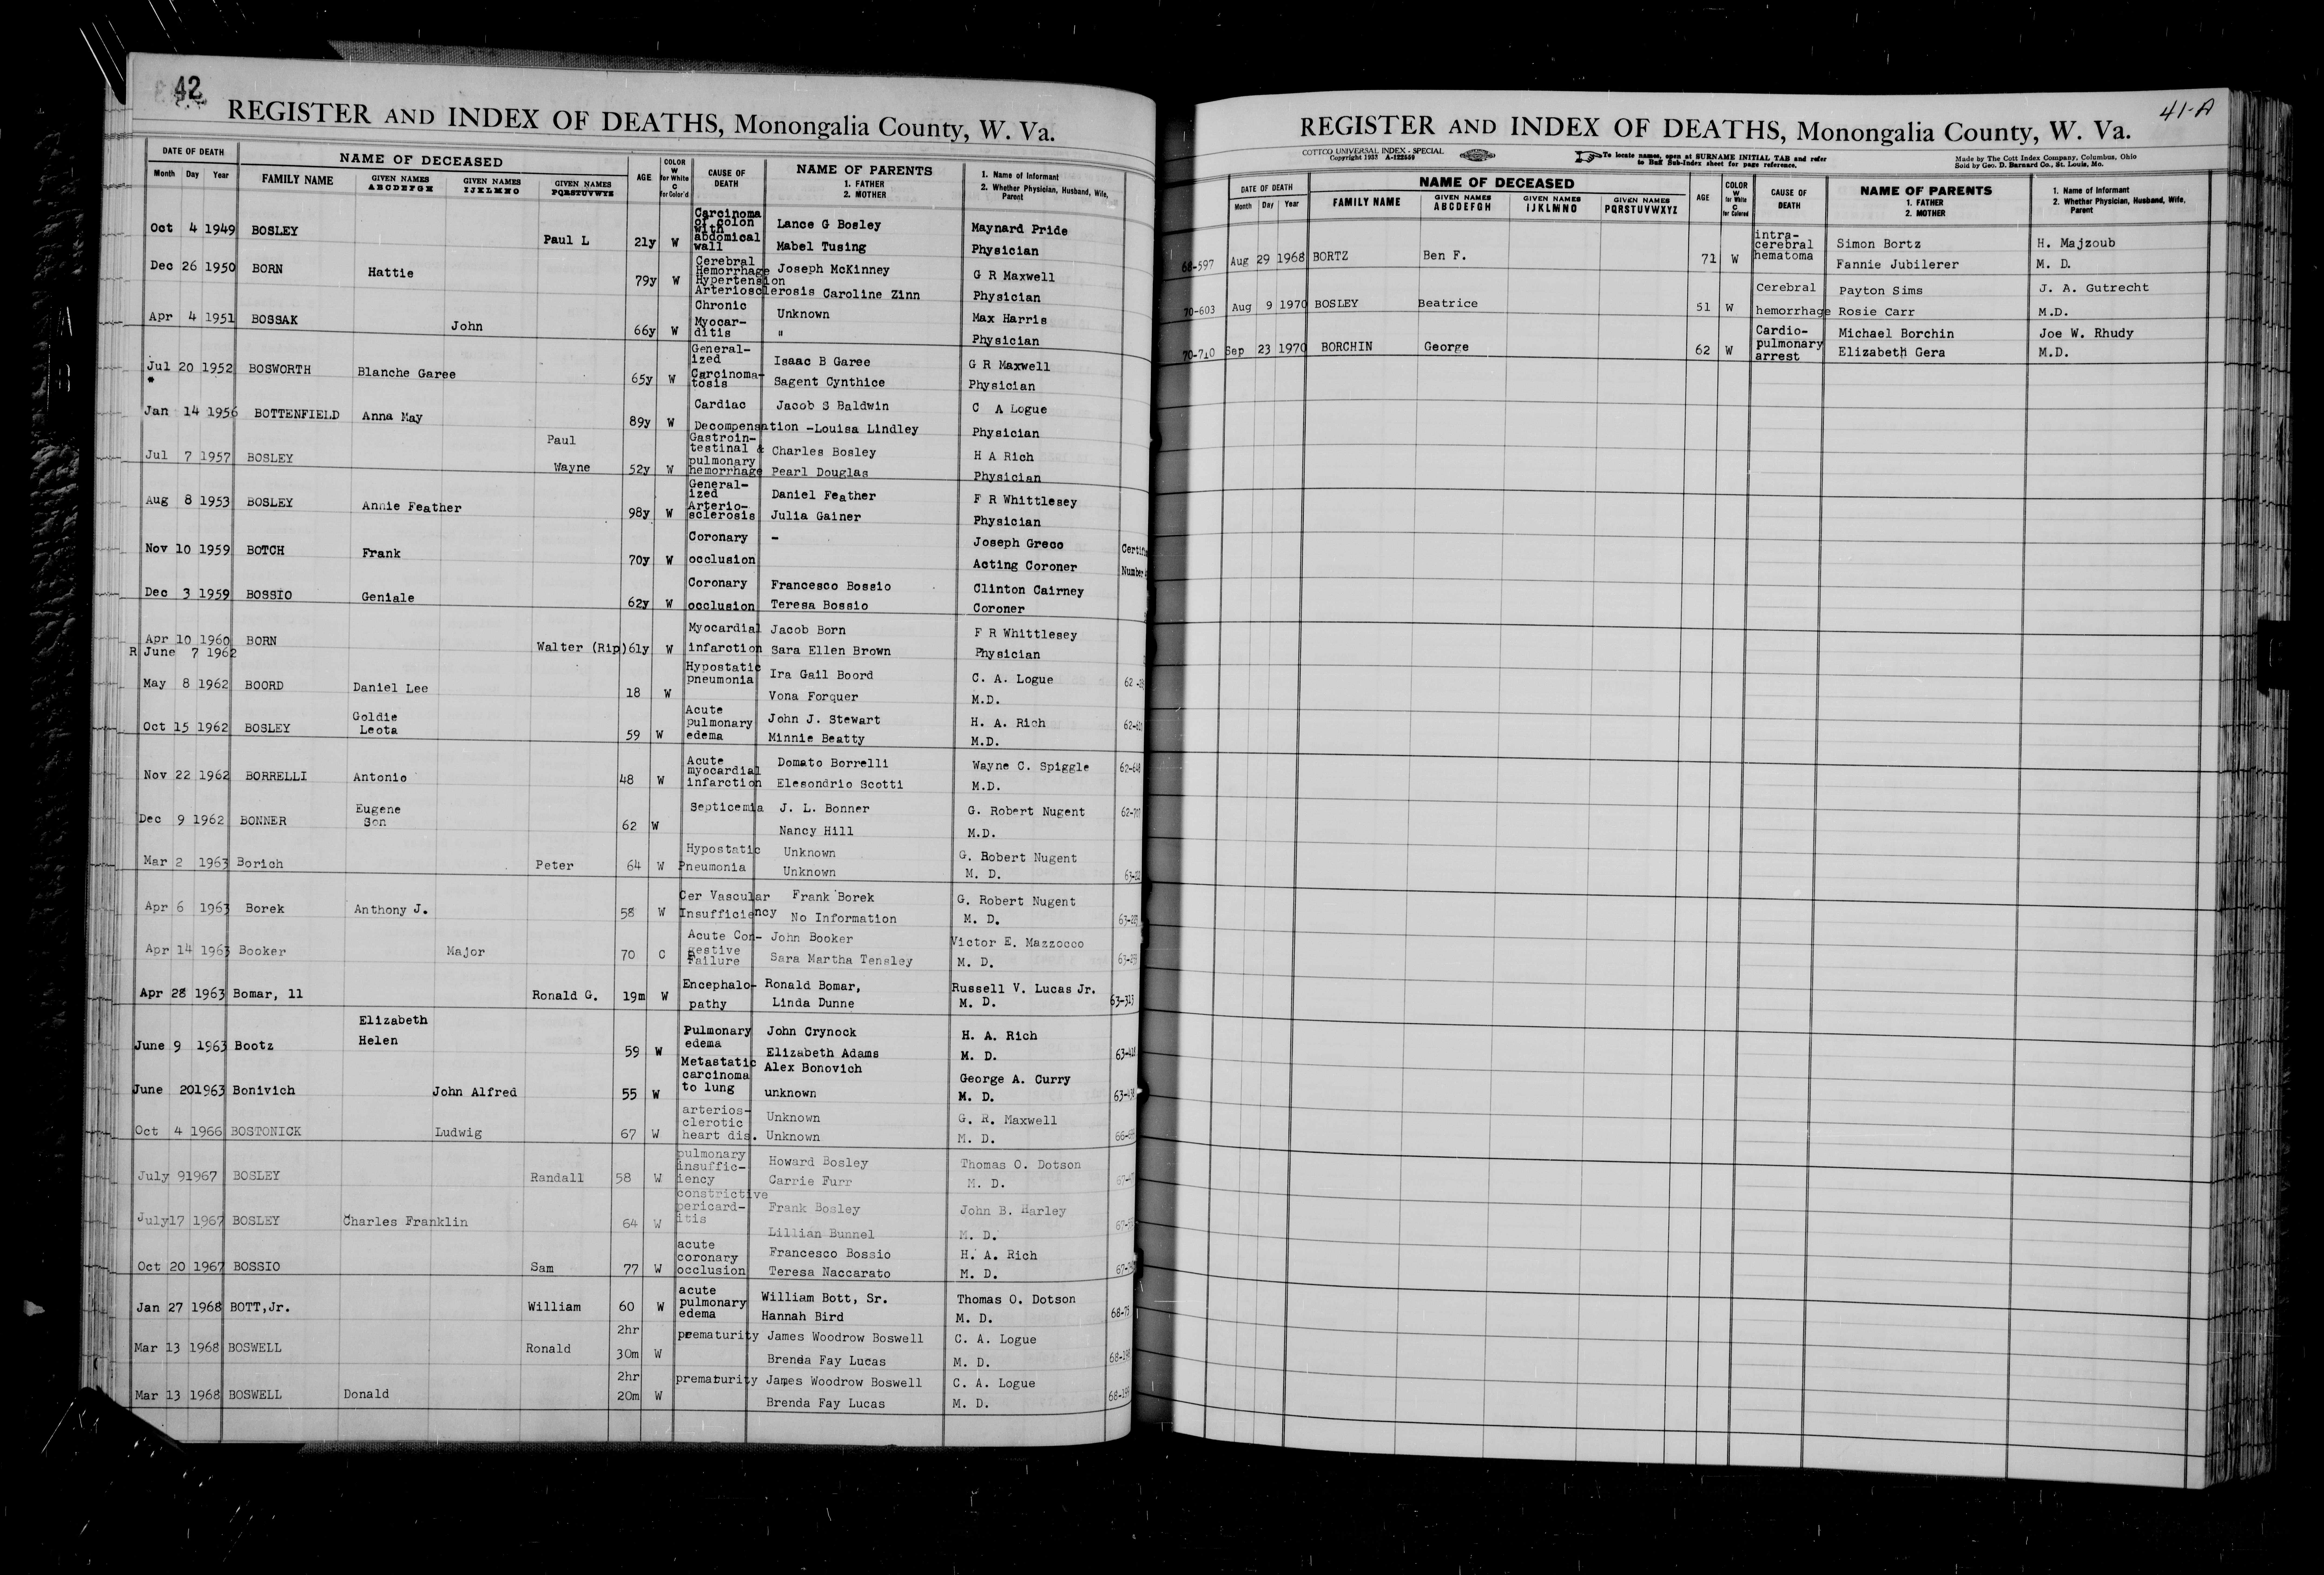 42
REGISTER AND INDEX OF DEATHS, Monongalia County, W. Va.
DATE OF DEATH NAME OF DECEASED AGE COLOR W for White C for Color'd CAUSE OF DEATH NAME OF PARENTS 1. FATHER 2. MOTHER 1. Name of Informant 2. Whether Physician, Husband, Wife, Parent
Month Day Year FAMILY NAME GIVEN NAMES ABCDEFGH GIVEN NAMES IJKLMNO GIVEN NAMES PQRSTUVWYZ
Oct 4 1949 BOSLEY Paul L 21y W Carcinoma of colon with abdomical wall Lance G Bosley Maynard Pride
Mabel Tusing Physician
Dec 26 1950 BORN Hattie 79y W Cerebral Hemorrhage Hypertension Arteriosclerosis Joseph McKinney G R Maxwell
Caroline Zinn Physician
Apr 4 1951 BOSSAK John 66y W Chronic Myocar- ditis Unknown Max Harris
" Physician
Jul 20 1952 BOSWORTH Blanche Garee 65y W General- ized Carcinoma- tosis Isaac B Garee G R Maxwell
* Sagent Cynthice Physician
Jan 14 1956 BOTTENFIELD Anna May 89y W Cardiac Jacob S Baldwin C A Logue
Decompensation -Louisa Lindley Physician
Jul 7 1957 BOSLEY Paul Wayne 52y W Gastroin- testinal & pulmonary hemorrhage Charles Bosley H A Rich
Pearl Douglas Physician
Aug 8 1953 BOSLEY Annie Feather 98y W General- ized Arterio- sclerosis Daniel Feather F R Whittlesey
Julia Gainer Physician
Nov 10 1959 BOTCH Frank 70y W Coronary occlusion - Joseph Greco
Acting Coroner
Dec 3 1959 BOSSIO Geniale 62y W Coronary occlusion Francesco Bossio Clinton Cairney
Teresa Bossio Coroner
Apr 10 1960 BORN Walter (Rip) 61y W Myocardial infarction Jacob Born F R Whittlesey
R June 7 1962 Sara Ellen Brown Physician
May 8 1962 BOORD Daniel Lee 18 W Hypostatic pneumonia Ira Gail Boord C. A. Logue
Vona Forquer M.D.
Oct 15 1962 BOSLEY Goldie Leota 59 W Acute pulmonary edema John J. Stewart H. A. Rich
Minnie Beatty M.D.
Nov 22 1962 BORRELLI Antonio 48 W Acute myocardial infarction Domato Borrelli Wayne C. Spiggle
Elesondrio Scotti M.D.
Dec 9 1962 BONNER Eugene Son 62 W Septicemia J. L. Bonner G. Robert Nugent
Nancy Hill M.D.
Mar 2 1963 Borich Peter 64 W Hypostatic Pneumonia Unknown G. Robert Nugent
Unknown M. D.
Apr 6 1963 Borek Anthony J. 58 W Cer Vascular Insufficiency Frank Borek G. Robert Nugent
No Information M. D.
Apr 14 1963 Booker Major 70 C Acute Con- gestive Failure John Booker Victor E. Mazzocco
Sara Martha Tensley M. D.
Apr 28 1963 Bomar, 11 Ronald G. 19m W Encephalo- pathy Ronald Bomar, Russell V. Lucas Jr.
Linda Dunne M. D. 63-313
June 9 1963 Bootz Elizabeth Helen 59 W Pulmonary edema John Crynock H. A. Rich
Elizabeth Adams M. D.
June 20 1963 Bonivich John Alfred 55 W Metastatic carcinoma to lung Alex Bonovich George A. Curry
unknown M. D.
Oct 4 1966 BOSTONICK Ludwig 67 W arterios- clerotic heart dis. Unknown G. R. Maxwell
Unknown M. D.
July 9 1967 BOSLEY Randall 58 W pulmonary insuffic- iency Howard Bosley Thomas O. Dotson
Carrie Furr M. D.
July 17 1967 BOSLEY Charles Franklin 64 W constrictive pericard- itis Frank Bosley John B. Harley
Lillian Bunnel M. D.
Oct 20 1967 BOSSIO Sam 77 W acute coronary occlusion Francesco Bossio H. A. Rich
Teresa Naccarato M. D.
Jan 27 1968 BOTT,Jr. William 60 W acute pulmonary edema William Bott, Sr. Thomas O. Dotson
Hannah Bird M. D. 68-75
Mar 13 1968 BOSWELL Ronald 2hr 30m W prematurity James Woodrow Boswell C. A. Logue
Brenda Fay Lucas M. D.
Mar 13 1968 BOSWELL Donald 2hr 20m W prematurity James Woodrow Boswell C. A. Logue
Brenda Fay Lucas M. D.
41-A
REGISTER AND INDEX OF DEATHS, Monongalia County, W. Va.
COTTCO UNIVERSAL INDEX - SPECIAL
Copyright 1937 A-122559
To locate names, open at SURNAME INITIAL TAB and refer
to Buff Sub-Index sheet for page reference.
Made by The Cott Index Company, Columbus, Ohio
Sold by Geo. D. Barnard Co., St. Louis, Mo.
DATE OF DEATH NAME OF DECEASED AGE COLOR W for White C for Colored CAUSE OF DEATH NAME OF PARENTS 1. FATHER 2. MOTHER 1. Name of Informant 2. Whether Physician, Husband, Wife, Parent
Month Day Year FAMILY NAME GIVEN NAMES ABCDEFGH GIVEN NAMES IJKLMNO GIVEN NAMES PQRSTUVWXYZ
68-597 Aug 29 1968 BORTZ Ben F. 71 W intra- cerebral hematoma Simon Bortz H. Majzoub
Fannie Jubilerer M. D.
70-603 Aug 9 1970 BOSLEY Beatrice 51 W Cerebral hemorrhage Payton Sims J. A. Gutrecht
Rosie Carr M.D.
70-710 Sep 23 1970 BORCHIN George 62 W Cardio- pulmonary arrest Michael Borchin Joe W. Rhudy
Elizabeth Gera M.D.